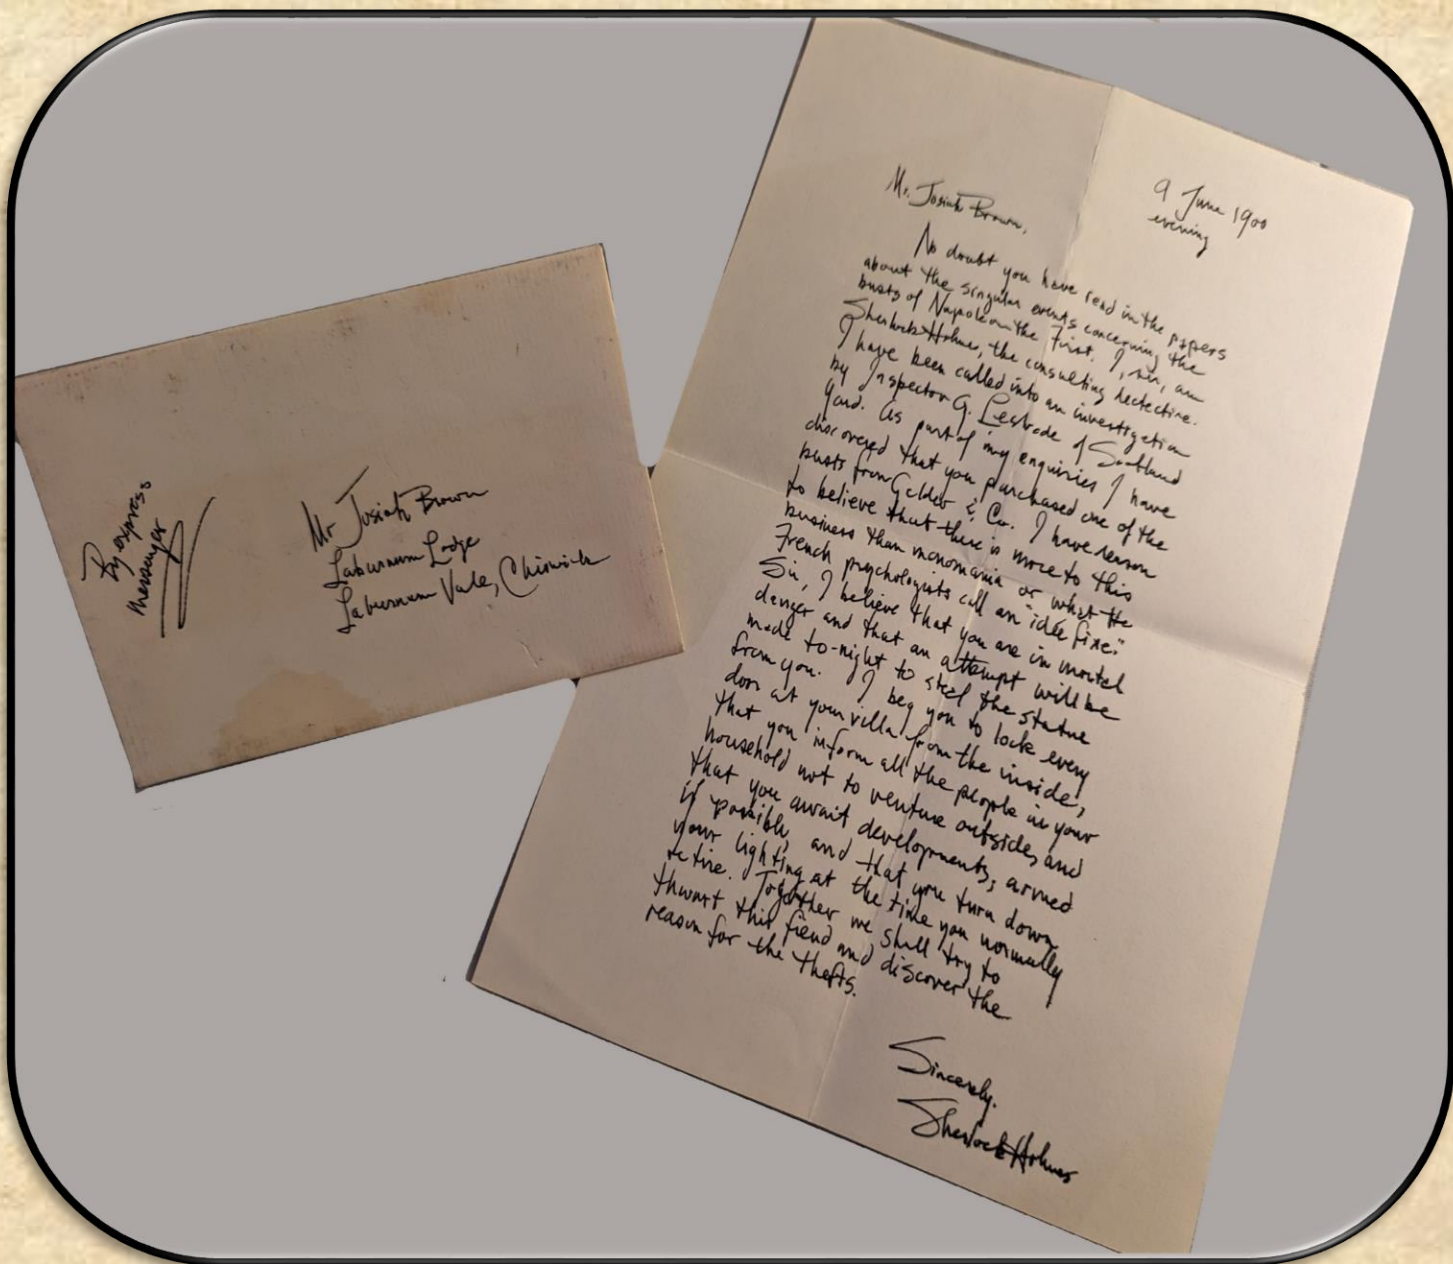 By express
messenger
Mr Josiah Brown
Laburnum Lodge
Laburnum Vale, Chiswick
9 June 1900
evening
Mr. Josiah Brown,
No doubt you have read in the papers
about the singular events concerning the
busts of Napoleon the First. I, sir, am
Sherlock Holmes, the consulting detective.
I have been called into an investigation
by Inspector G. Lestrade of Scotland
Yard. As part of my enquiries I have
discovered that you purchased one of the
busts from Gelder & Co. I have reason
to believe that there is more to this
business than monomania or what the
French psychologists call an "idée fixe."
Sir, I believe that you are in mortal
danger and that an attempt will be
made to-night to steal the statue
from you. I beg you to lock every
door at your villa from the inside,
that you inform all the people in your
household not to venture outside, and
that you await developments, armed
if possible, and that you turn down
your lighting at the time you normally
retire. Together we shall try to
thwart this fiend and discover the
reason for the thefts.
Sincerely.
Sherlock Holmes